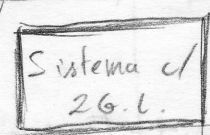 Sistema c/
2G.L.